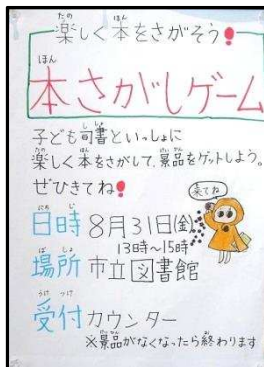 楽しく本をさがそう!
本さがしゲーム
子ども司書といっしょに
楽しく本をさがして、景品をゲットしよう。
ぜひきてね!
来てね
日時 8月31日(金)
13時~15時
場所 市立図書館
受付 カウンター
※景品がなくなったら終わります